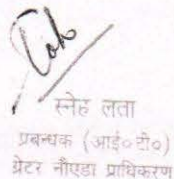 स्नेह लता
प्रबन्धक (आई०टी०)
ग्रेटर नौएडा प्राधिकरण